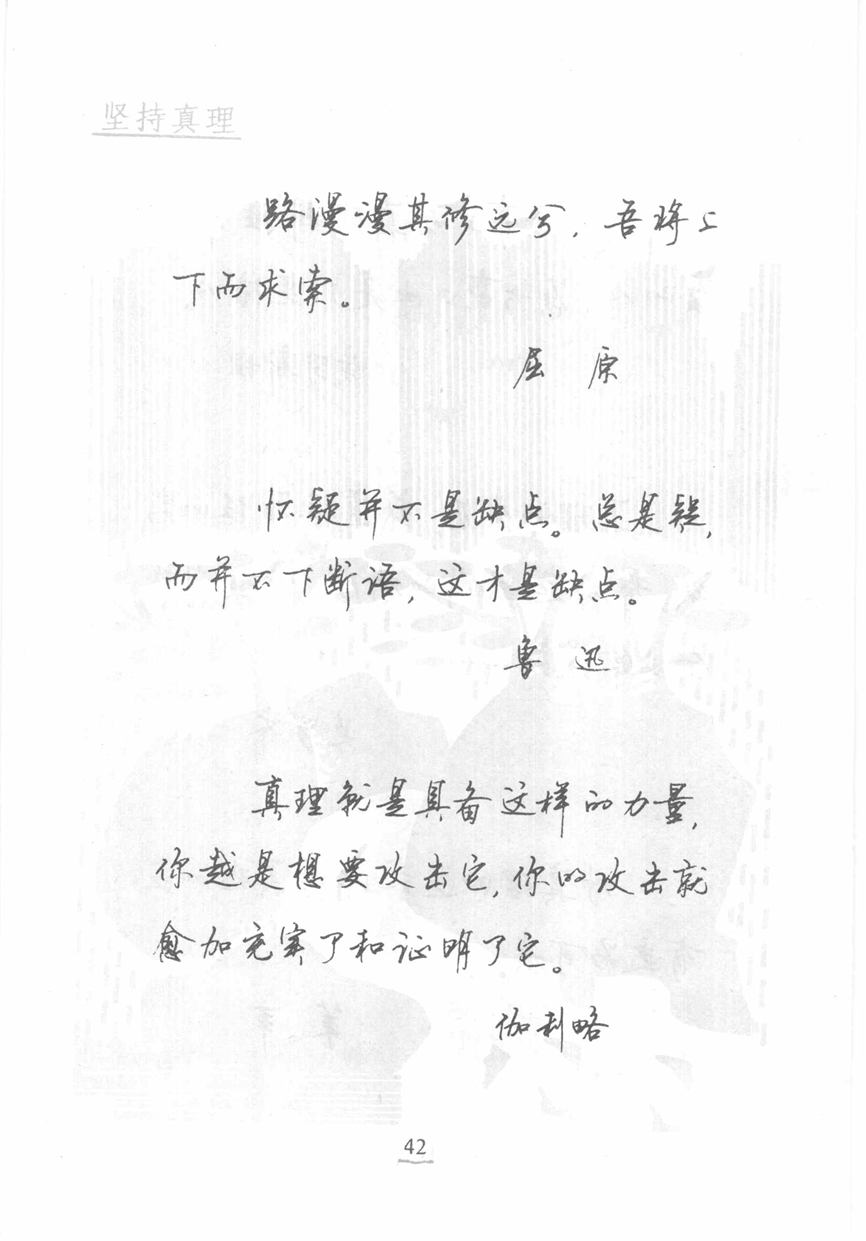 坚持真理
路漫漫其修远兮，吾将上
下而求索。
屈 原
怀疑并不是缺点。总是疑，
而并不下断语，这才是缺点。
鲁 迅
真理就是具备这样的力量，
你越是想要攻击它，你的攻击就
愈加充实了和证明了它。
伽利略
42